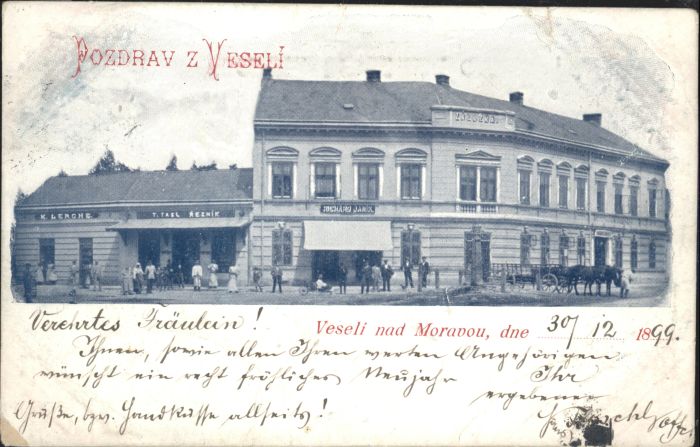 POZDRAV Z VESELÍ
K. LERCHE.
T. TAGL ŘEZNÍK
Veselí nad Moravou, dne 30/12 1899.
Verehrtes Fräulein!
Ihnen, sowie allen Ihren werten Angehörigen
wünscht ein recht fröhliches Neujahr Ihr
ergebener
Grüße, bzw. Handküsse allseits!